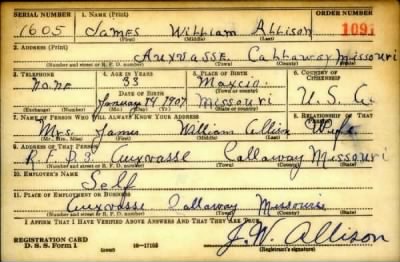 SERIAL NUMBER 1. NAME (Print) ORDER NUMBER
1605 James William Allison 1091
(First) (Middle) (Last)
2. ADDRESS (Print)
Auxvasse Callaway Missouri
(Number and street or R. F. D. number) (Town) (County) (State)
3. TELEPHONE 4. AGE IN YEARS 5. PLACE OF BIRTH 6. COUNTRY OF CITIZENSHIP
none 33
DATE OF BIRTH (Town or county)
January 14 1907 Missouri U. S. A.
(Exchange) (Number) (Mo.) (Day) (Yr.) (State or country)
7. NAME OF PERSON WHO WILL ALWAYS KNOW YOUR ADDRESS 8. RELATIONSHIP OF THAT PERSON
Mrs. James William Allison Wife
(Mr., Mrs., Miss) (First) (Middle) (Last)
9. ADDRESS OF THAT PERSON
Auxvasse Callaway Missouri
(Number and street or R. F. D. number) (Town) (County) (State)
10. EMPLOYER'S NAME
Self
11. PLACE OF EMPLOYMENT OR BUSINESS
Auxvasse Callaway Missouri
(Number and street or R. F. D. number) (Town) (County) (State)
I AFFIRM THAT I HAVE VERIFIED ABOVE ANSWERS AND THAT THEY ARE TRUE.
REGISTRATION CARD
D. S. S. Form 1 16-17105 J. W. Allison
(Registrant's signature)